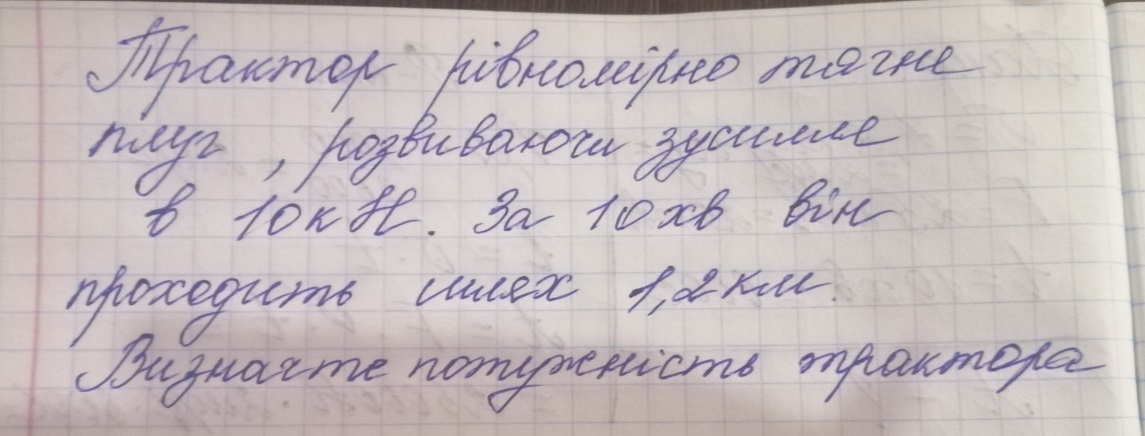 Трактор рівномірно тягне
плуг, розвиваючи зусилле
в 10кН. За 10хв він
проходить шлях 1,2км.
Визначте потужність трактора